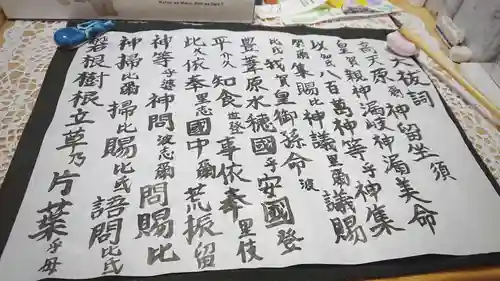 大祓詞
高天原爾神留坐須
皇賀親神漏岐神漏美命
以知氐八百萬神等乎神集
爾集賜比神議里爾議賜
比氐我賀皇御孫命波
豊葦原水穂國乎安國登
平介久知食世登事依奉里伎
比久依奉里志國中爾荒振留
神等乎婆神問波志爾問賜比
神掃爾掃比賜比氐語問比氐
磐根樹根立草乃片葉乎母